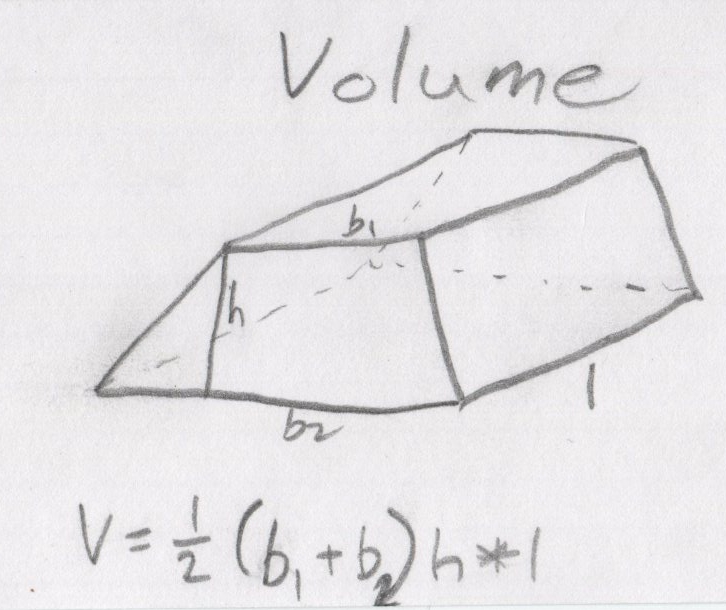 Volume
b₁
h
b₂
l
V = ½ (b₁ + b₂) h * l